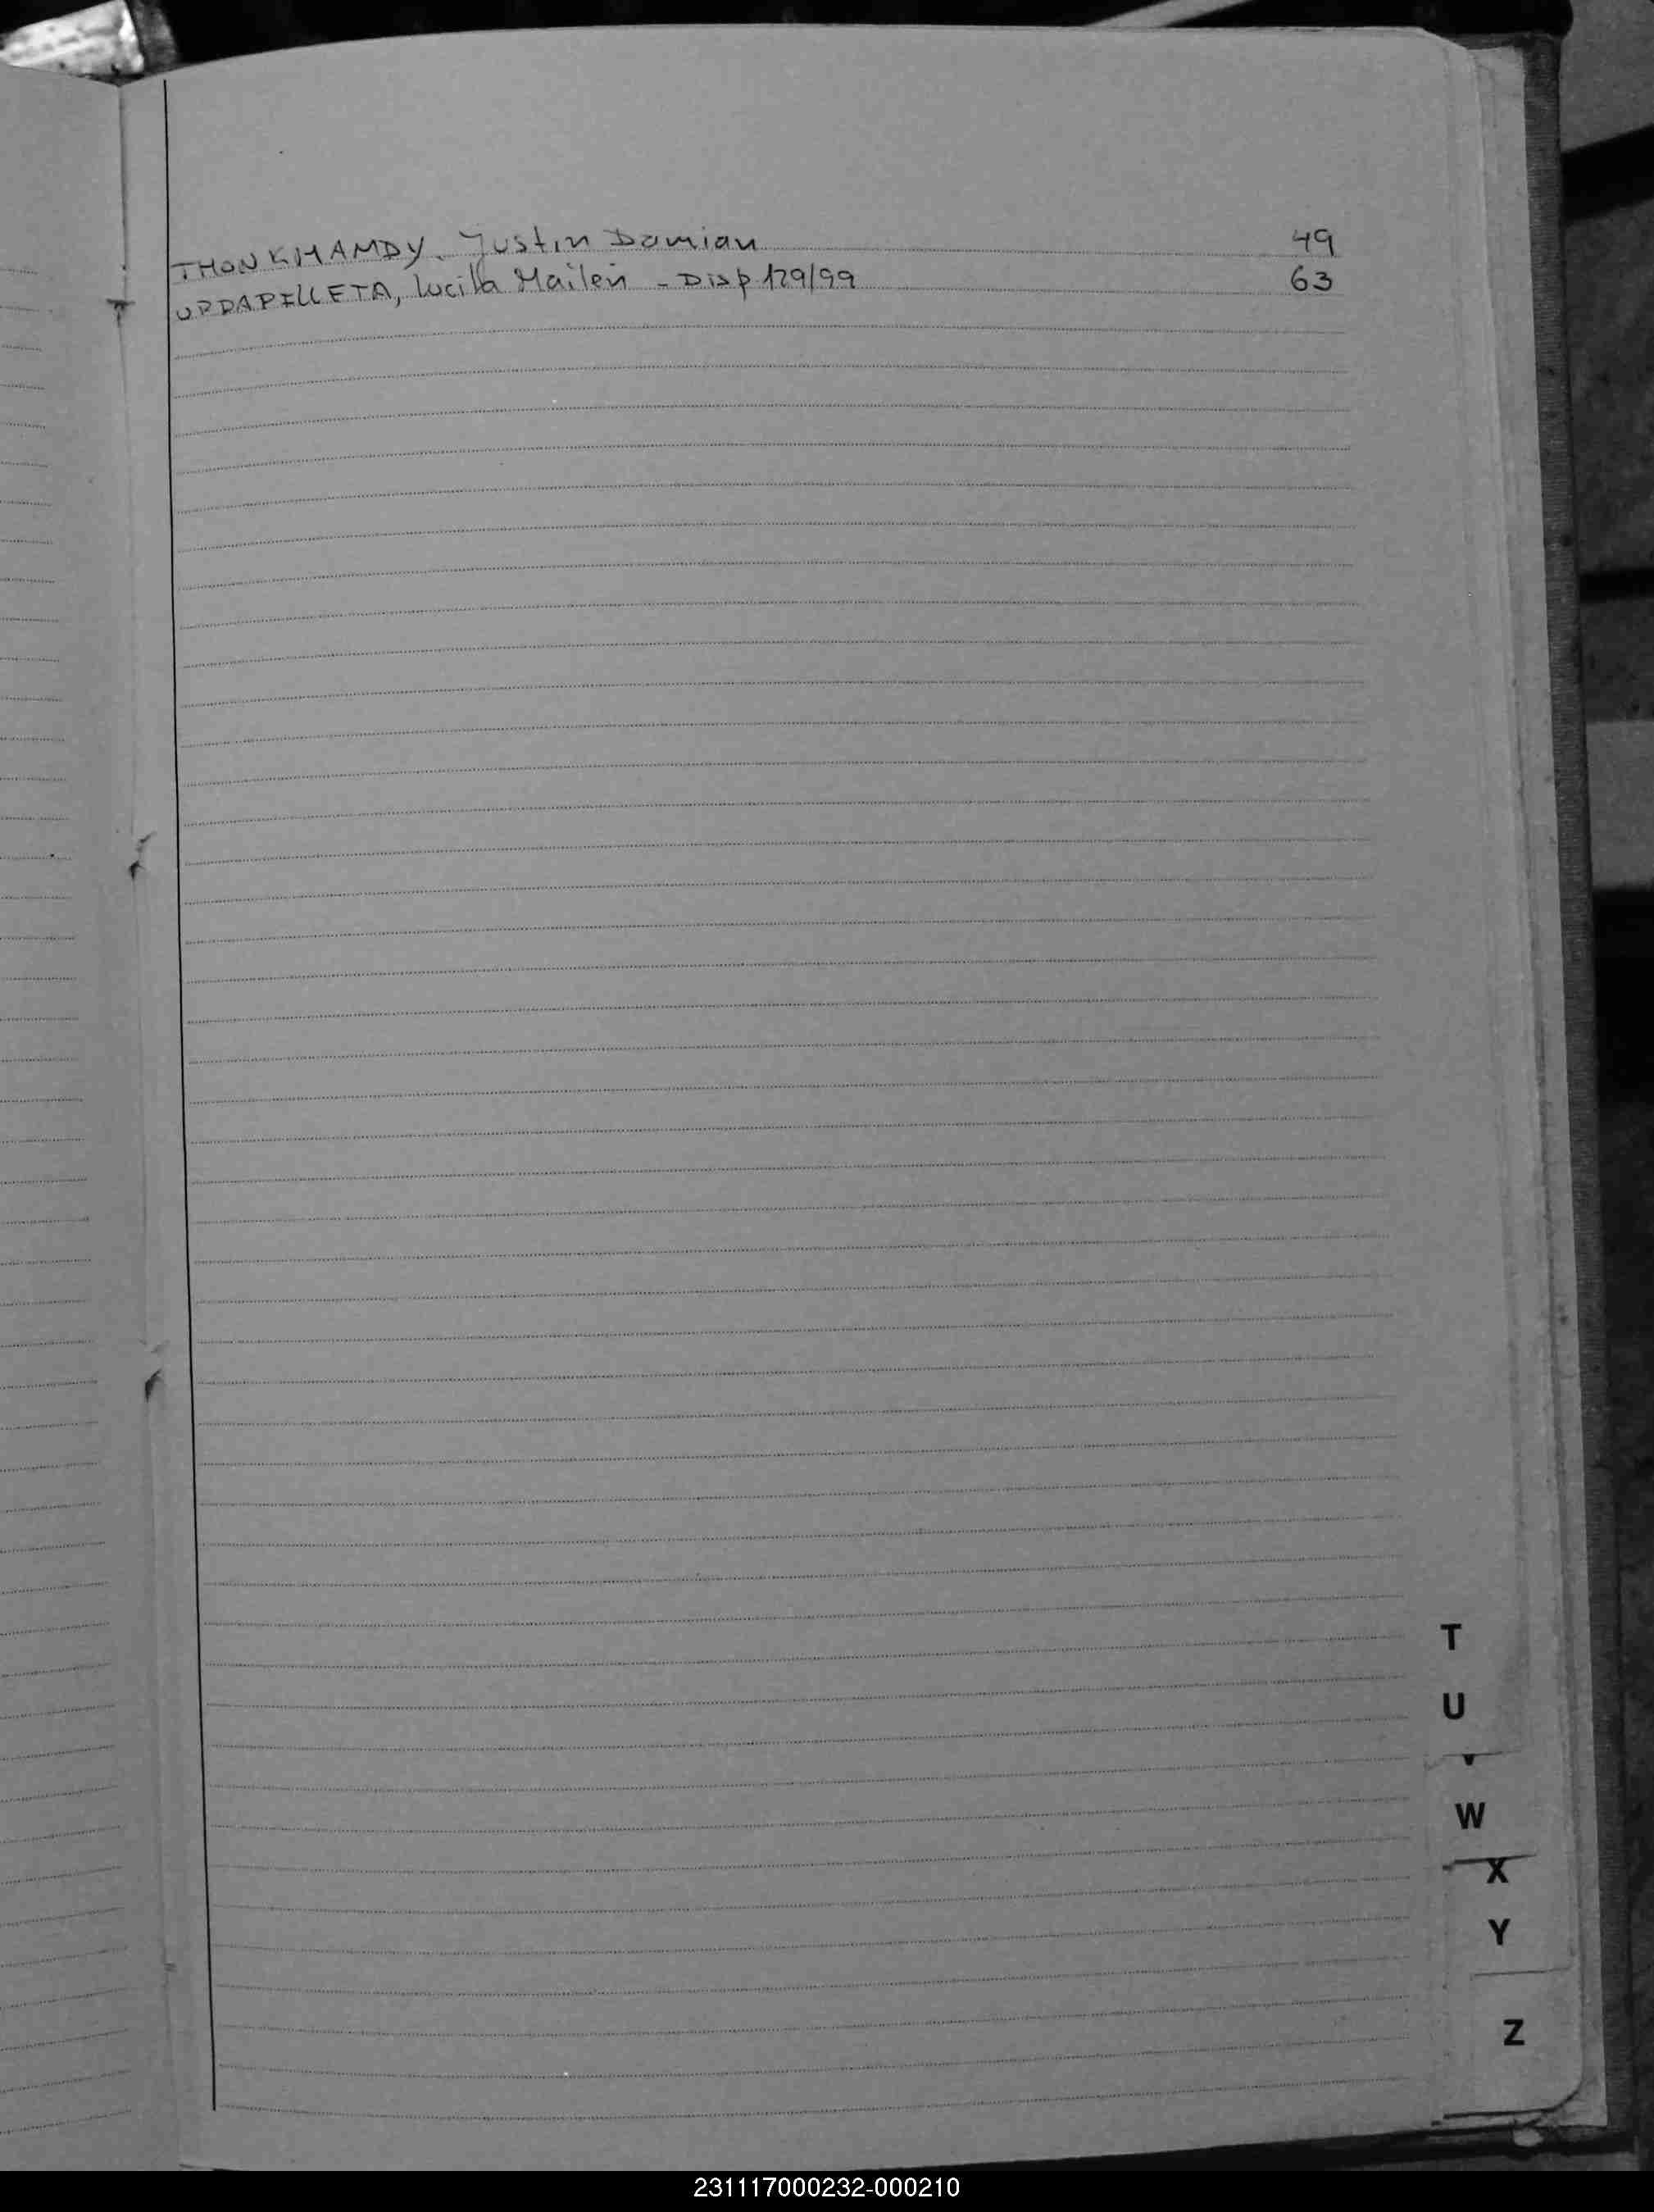 THONKHAMDY, Justin Damian 49
URDAPILLETA, Lucila Mailen - Disp 129/99 63
T
U
V
W
X
Y
Z
231117000232-000210